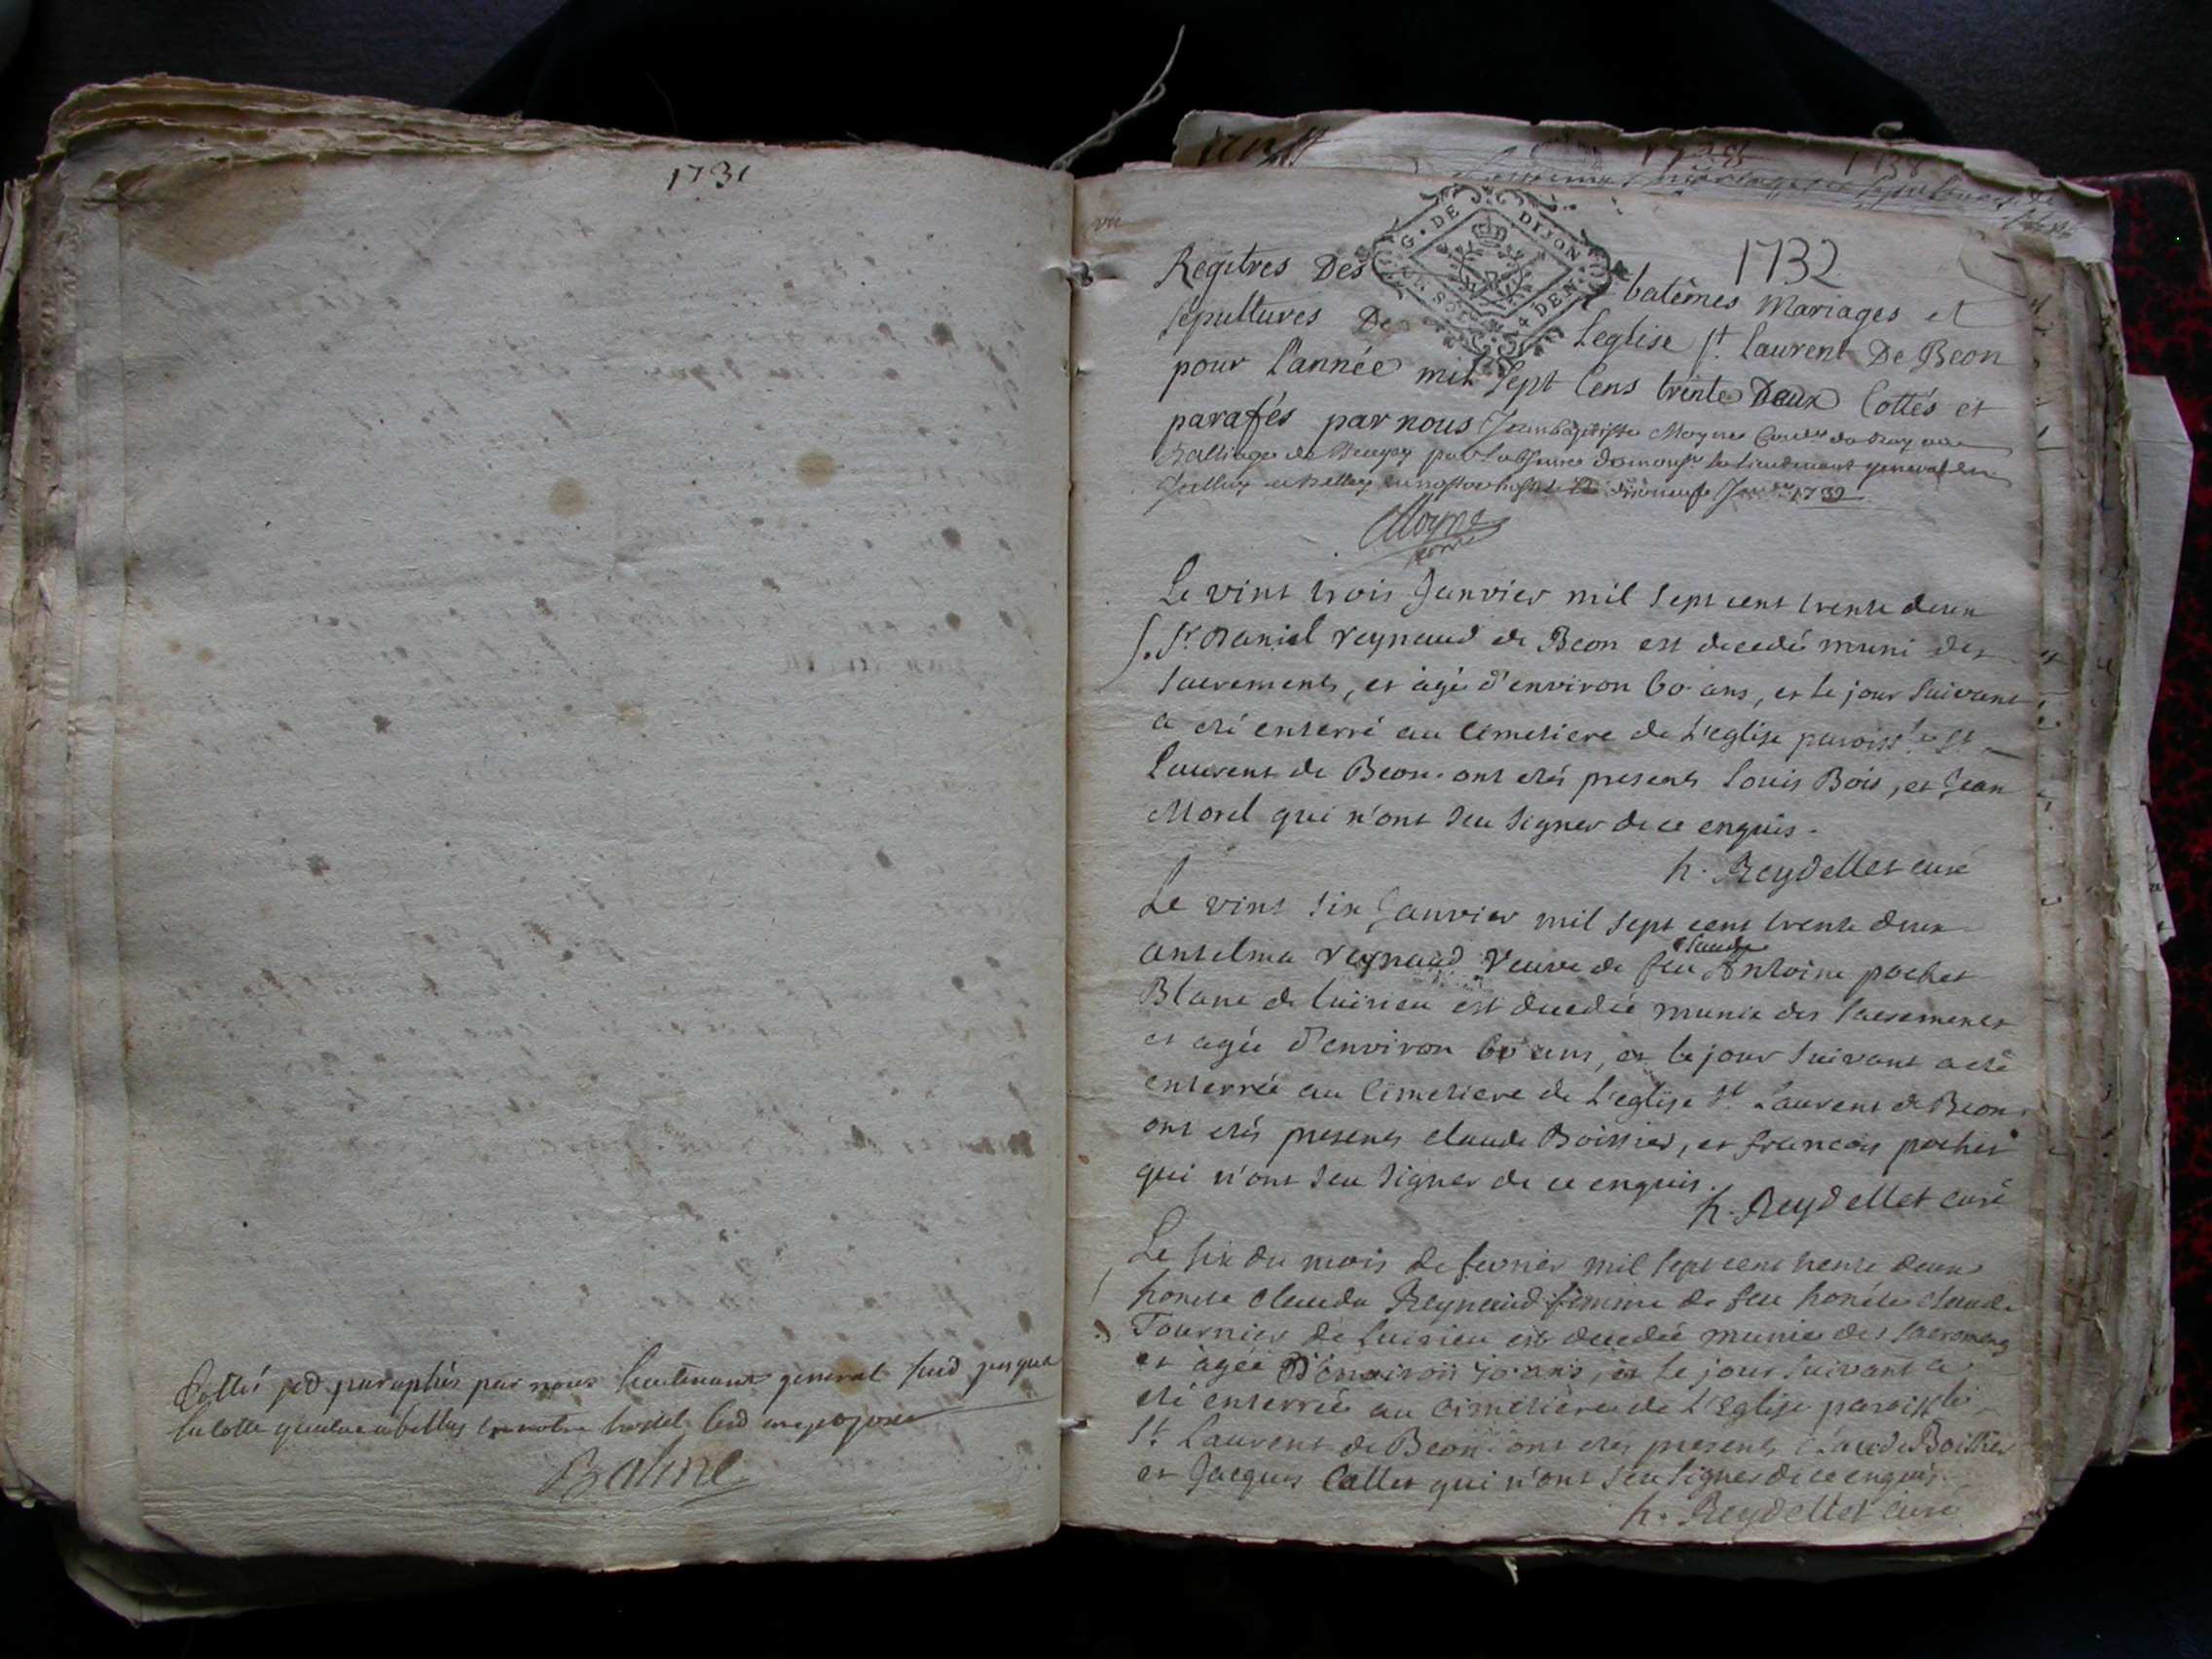 1731
Cottés et paraphés par nous lieutenant general susd jusqua
la cotte quatre a belley en notre hostel lesd an et jour
Balme
1738
1732
G. DE DIJON
4 DEN.
Regitres Des batêmes Mariages et
sepultures De Leglise st. Laurent De Beon
pour L'année mil sept Cens trente Deux Cottés et
parafés par nous Jeanbaptiste Moyne Con.er du Roy au
Balliage de Beugey par Labsence de monsr. le lieutenant general
a belley en nostre hostel Le dixneuf Janv.er 1732
Moyne
Le vint trois Janvier mil sept cent trente deux
S. Sr. Daniel reynaud de Beon est decedé muni des
sacrements, et âgé d'environ 60 ans, et le jour suivant
a eté enterré au Cimetiere de L'eglise paroiss.le St
Laurent de Beon. ont etés presents Louis Bois, et Jean
Morel qui n'ont seu signer de ce enquis.
h. Reydellet curé
Le vint six Janvier mil sept cent trente deux
claude
Antelma reynaud veuve de feu Antoine pochet
Blanc de Luirieu est decedée munie des sacrements
et agée d'environ 60 ans, et le jour suivant a eté
enterrée au Cimetiere de L'eglise St Laurent de Beon.
ont etés presents claude Boissier, et francois pochet
qui n'ont seu signer de ce enquis.
h. Reydellet curé
Le six du mois de fevrier mil sept cent trente deux
honete Claudu Reynaud femme de feu honête claude
Tournier de Luirieu est decedée munie des sacrements
et âgée D'environ 70 ans, et le jour suivant a
eté enterrée au Cimetiere de L'Eglise paroissle
St. Laurent de Beon. ont etés presents Claude Boissier
et Jacques Callet qui n'ont seu signer de ce enquis.
h. Reydellet curé